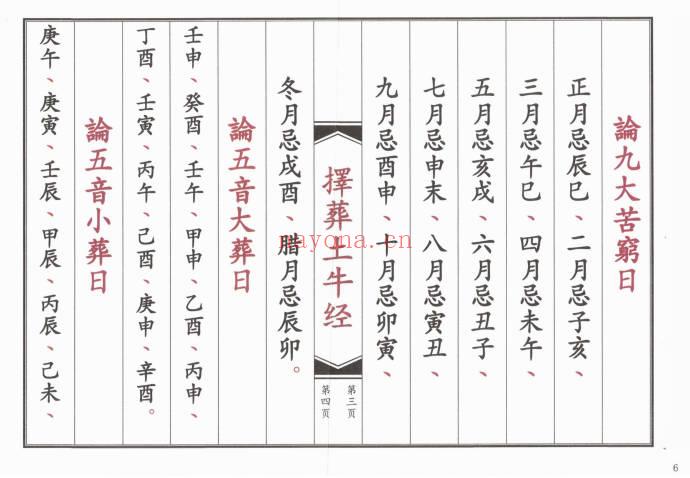 論九大苦窮日
正月忌辰巳、二月忌子亥、
三月忌午巳、四月忌未午、
五月忌亥戌、六月忌丑子、
七月忌申末、八月忌寅丑、
九月忌酉申、十月忌卯寅、
擇葬土牛经
第三页
第四页
冬月忌戌酉、腊月忌辰卯。
論五音大葬日
壬申、癸酉、壬午、甲申、乙酉、丙申、
丁酉、壬寅、丙午、己酉、庚申、辛酉。
論五音小葬日
庚午、庚寅、壬辰、甲辰、丙辰、己未、
nayona.cn
6